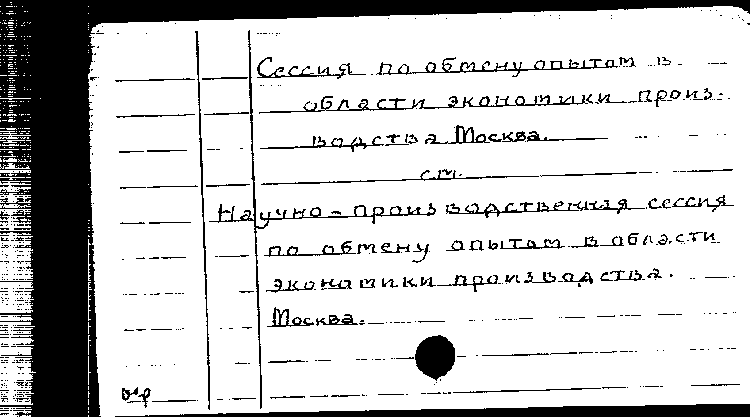 Сессия по обмену опытом в
области экономики произ-
водства Москва.
см.
Научно-производственная сессия
по обмену опытом в области
экономики производства.
Москва.